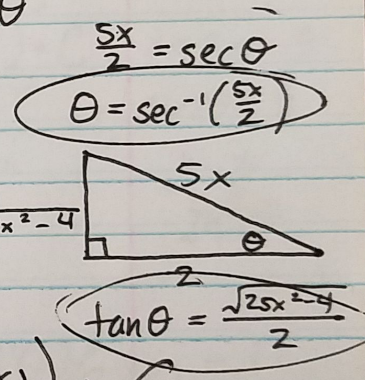 θ
5x/2 = sec θ
θ = sec⁻¹(5x/2)
5x
x² - 4
θ
2
tan θ = √(25x² - 4)/2